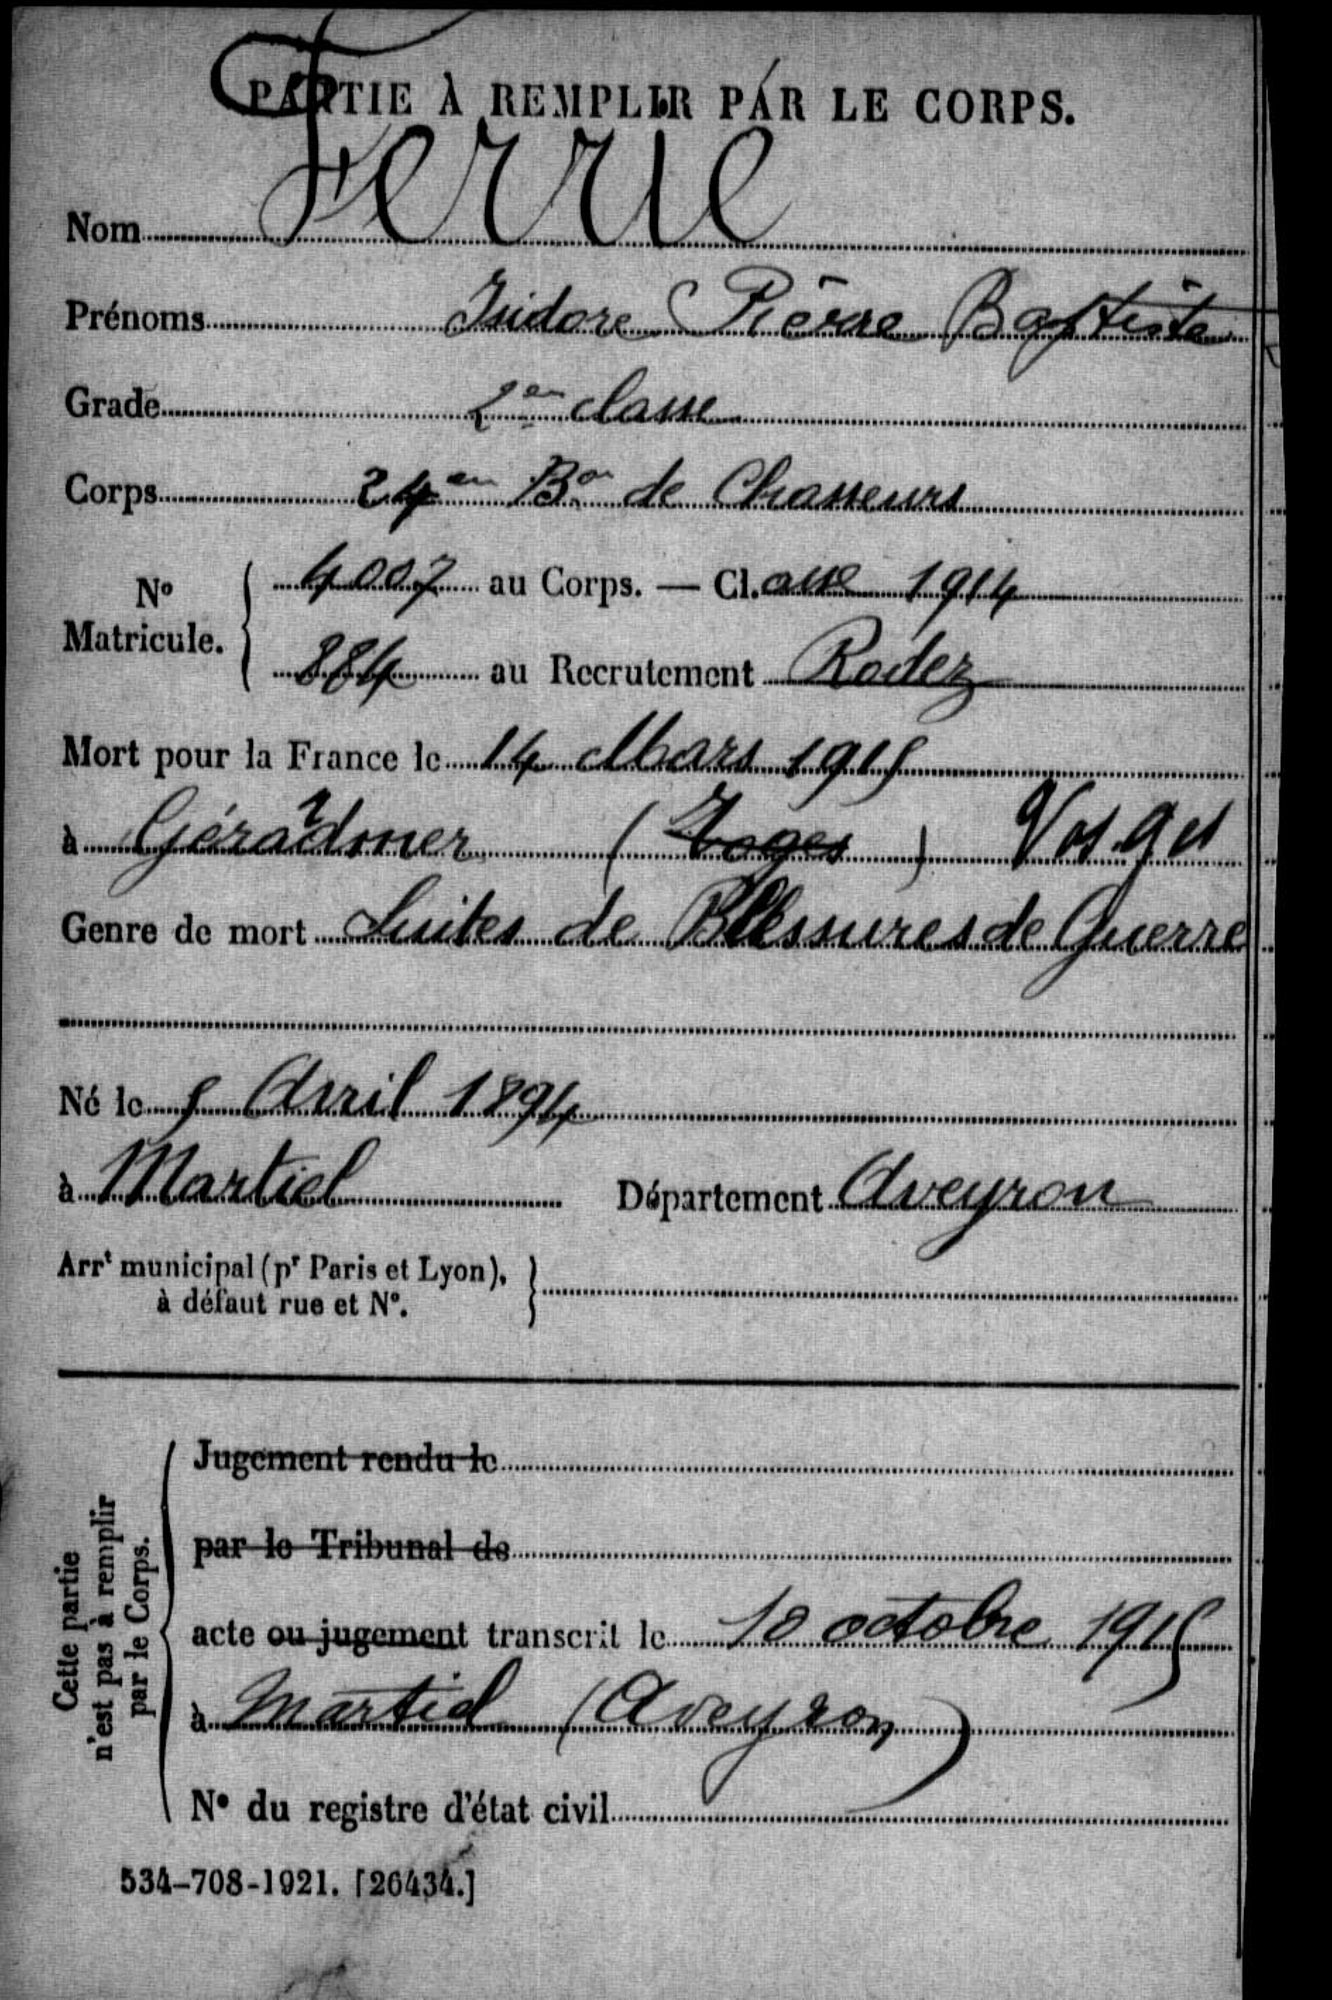 PARTIE À REMPLIR PAR LE CORPS.
Nom Ferrie
Prénoms Isidore Pierre Baptiste
Grade 2en classe
Corps 24en Bon de Chasseurs
No Matricule. { 4007 au Corps. — Cl.asse 1914
884 au Recrutement Rodez
Mort pour la France le 14 Mars 1915
à Gérardmer (Voges) Vosges
Genre de mort Suites de Blessures de Guerre
Né le 5 Avril 1894
à Martiel Département Aveyron
Arrt municipal (pr Paris et Lyon),
à défaut rue et No.
Cette partie n'est pas à remplir par le Corps.
Jugement rendu le
par le Tribunal de
acte ou jugement transcrit le 10 octobre 1915
à Martiel (Aveyron)
No du registre d'état civil
534-708-1921. [26434.]